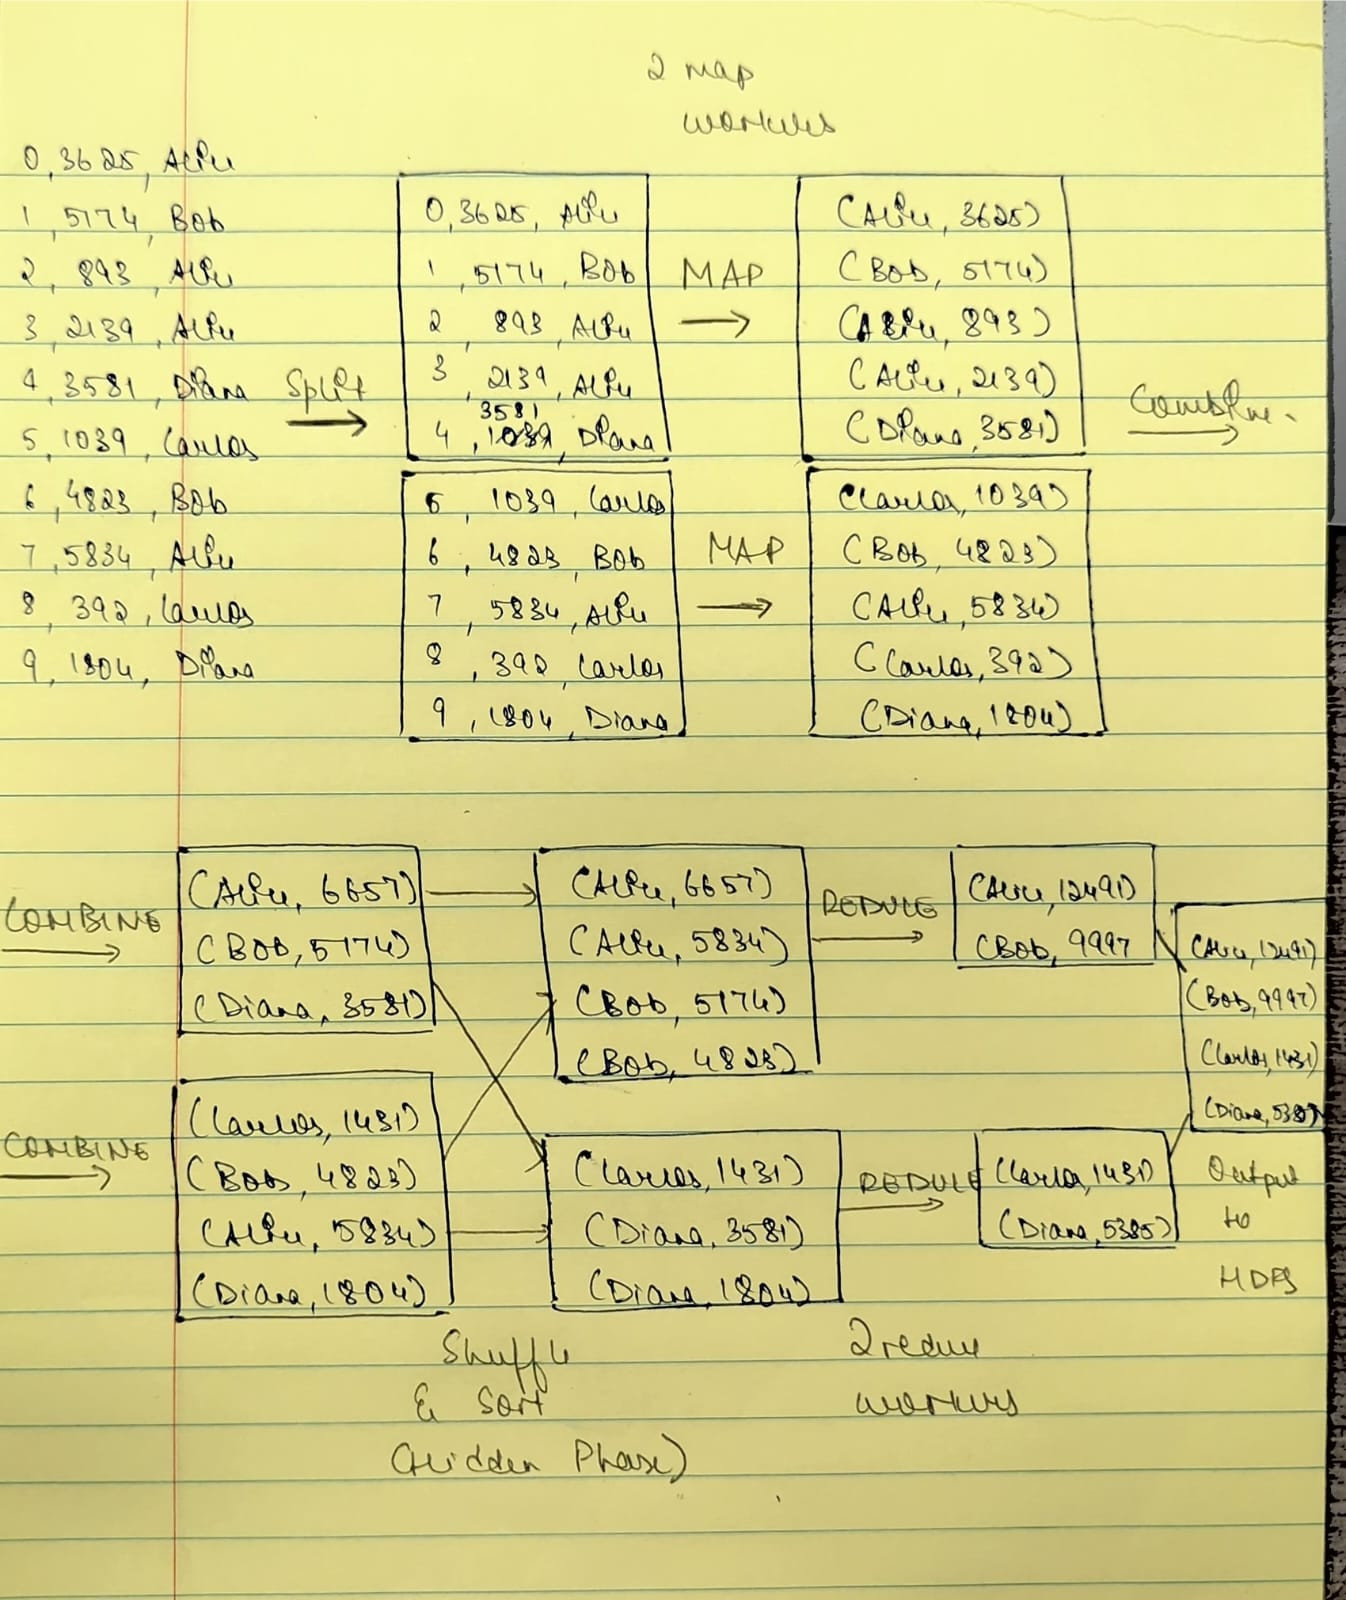 2 map
workers
0, 3625, Alice
1, 5174, Bob
2, 893, Alice
3, 2139, Alice
4, 3581, Diana
5, 1039, Carlos
6, 4823, Bob
7, 5834, Alice
8, 392, Carlos
9, 1804, Diana
Split
0, 3625, Alice
1, 5174, Bob
2, 893, Alice
3, 2139, Alice
3581
4, 1039, Diana
5, 1039, Carlos
6, 4823, Bob
7, 5834, Alice
8, 392, Carlos
9, 1804, Diana
MAP
MAP
(Alice, 3625)
(Bob, 5174)
(Alice, 893)
(Alice, 2139)
(Diana, 3581)
(Carlos, 1039)
(Bob, 4823)
(Alice, 5834)
(Carlos, 392)
(Diana, 1804)
Combine.
COMBINE
(Alice, 6657)
(Bob, 5174)
(Diana, 3581)
COMBINE
(Carlos, 1431)
(Bob, 4823)
(Alice, 5834)
(Diana, 1804)
Shuffle
& Sort
(Hidden Phase)
(Alice, 6657)
(Alice, 5834)
(Bob, 5174)
(Bob, 4823)
(Carlos, 1431)
(Diana, 3581)
(Diana, 1804)
REDUCE
REDUCE
2 reduce
workers
(Alice, 12491)
(Bob, 9997
(Carlos, 1431)
(Diana, 5385)
(Alice, 12491)
(Bob, 9997)
(Carlos, 1431)
(Diana, 5385)
Output
to
HDFS